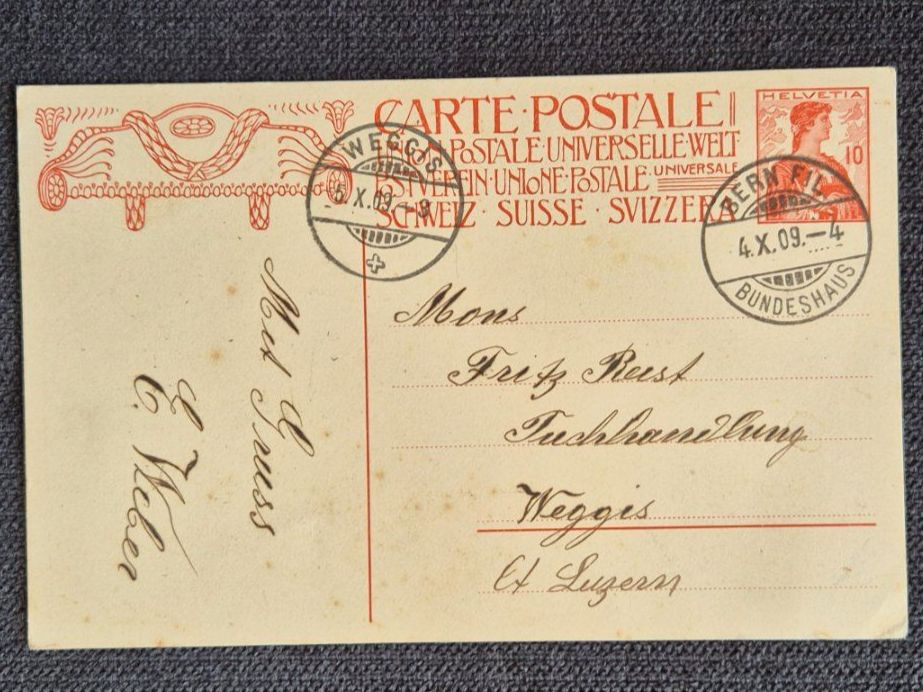 CARTE·POSTALE
POSTALE·UNIVERSELLE·WELT
VEREIN·UNIONE·POSTALE UNIVERSALE
SCHWEIZ · SUISSE · SVIZZERA
HELVETIA
10
WEGGIS
5.X.09.–8
BERN FIL.
4.X.09.–4
BUNDESHAUS
Mons
Fritz
Tuchhandlung
Weggis
Ct Luzern
Mit Gruss
E. Weber